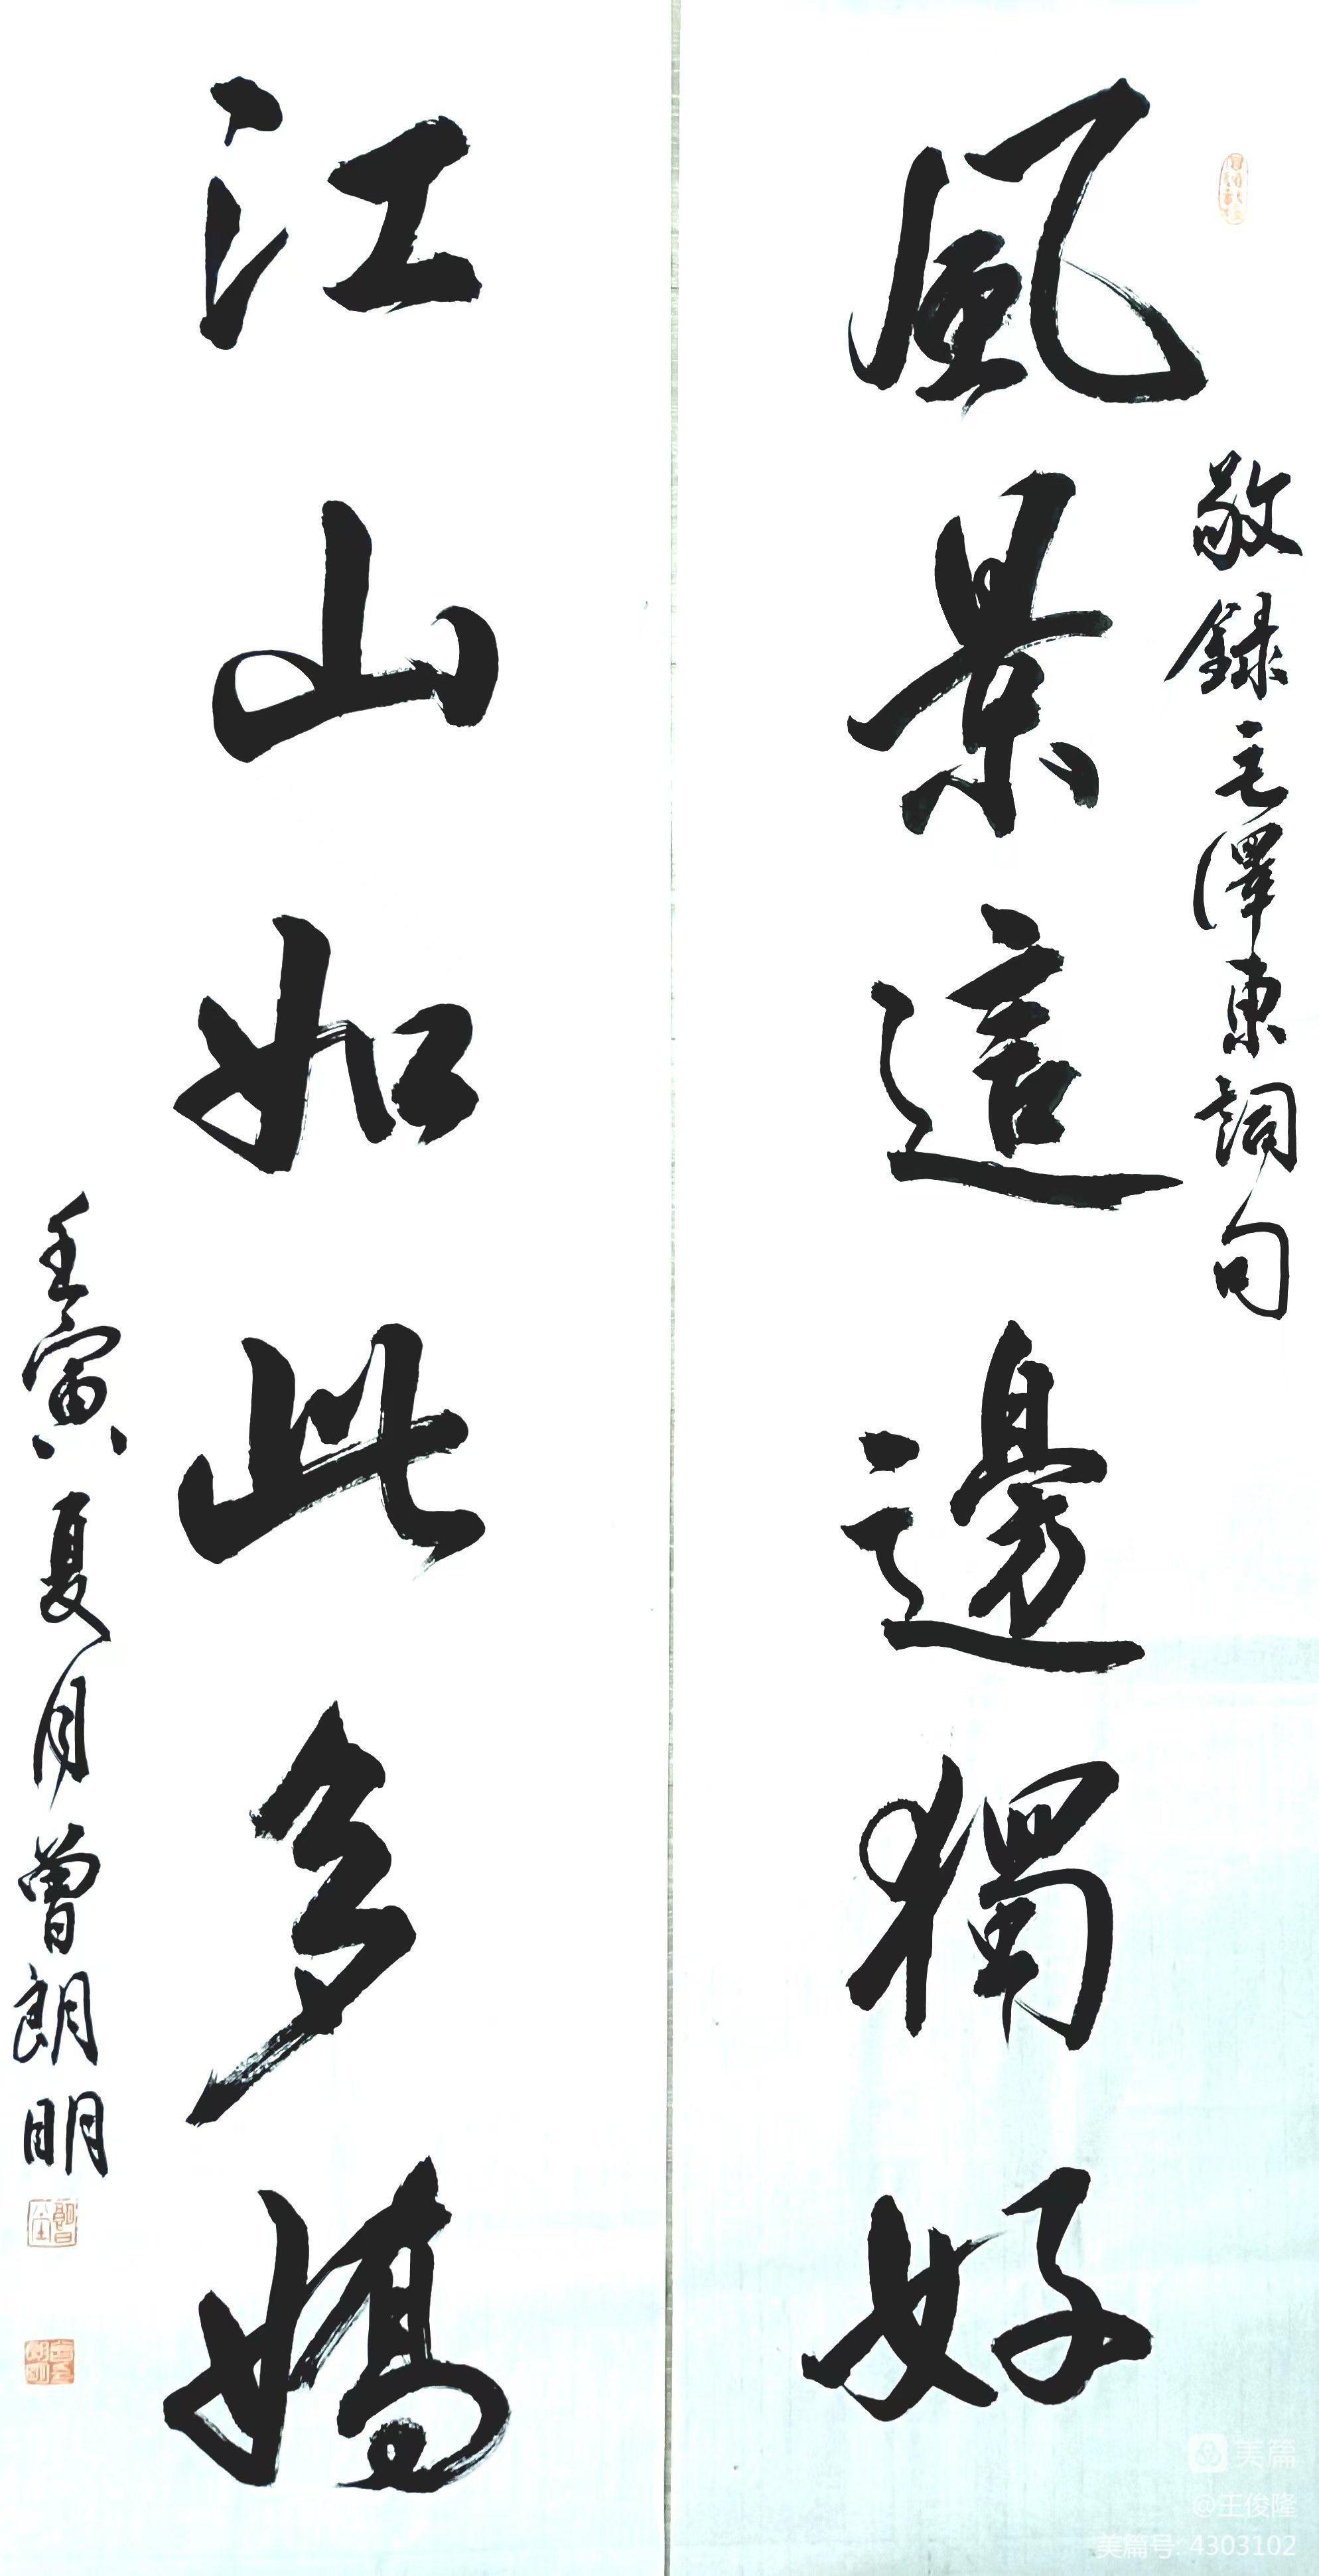 敬錄毛澤東詞句
風景這邊獨好
江山如此多嬌
壬寅夏月曾朗明
美篇
@王俊隆
美篇号: 4303102